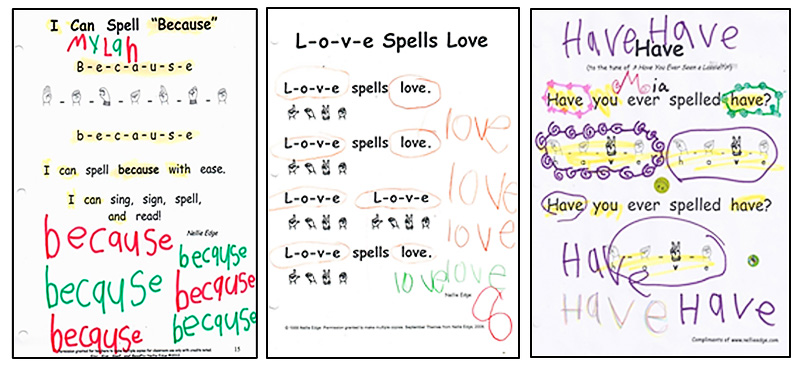 I Can Spell "Because"
MyLah
B-e-c-a-u-s-e
b-e-c-a-u-s-e
I can spell because with ease.
I can sing, sign, spell,
and read!
Nellie Edge
because
because
because
because
because
because
15
L-o-v-e Spells Love
L-o-v-e spells love.
love
L-o-v-e spells love.
love
L-o-v-e L-o-v-e
love
L-o-v-e spells love.
love love
Nellie Edge
Nellie Edge. Permission granted to make multiple copies. September Themes from Nellie Edge,
Have Have
Have
(to the tune of A Have You Ever Seen a
Mia
Have you ever spelled have?
h a v e h a v e
Have you ever spelled have?
h a v e
Have
Have Have
Compliments of www.nellieedge.com